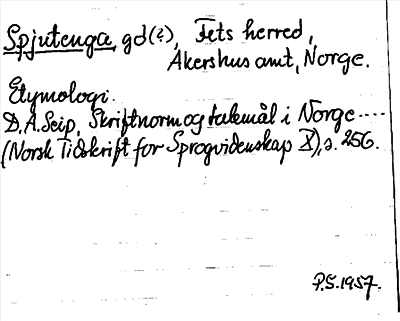 Spjutenga, gd(e), Fets herred,
Akershus amt, Norge.
Etymologi.
D. A. Seip, Skriftnorm og talemål i Norge ....
(Norsk Tidskrift for Sprogvidenskap X), s. 256.
P.S. 1957.